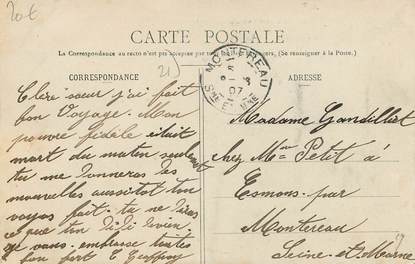 20€
CARTE POSTALE
La Correspondance au recto n'est pas acceptée par tous les pays étrangers. (Se renseigner à la Poste.)
CORRESPONDANCE
21
MONTEREAU
07
SEINE ET MARNE
ADRESSE
Chère sœur j'ai fait
bon voyage. Mon
pauvre fidèle était
mort du matin seulement
tu me donneras les
nouvelles aussitôt ton
voyage fait. tu me diras
ce que ton
je vous embrasse toutes
bien fort E Geoffroy
Madame Gandillat
chez Mme Petit à
Esmons par
Montereau
Seine et Marne